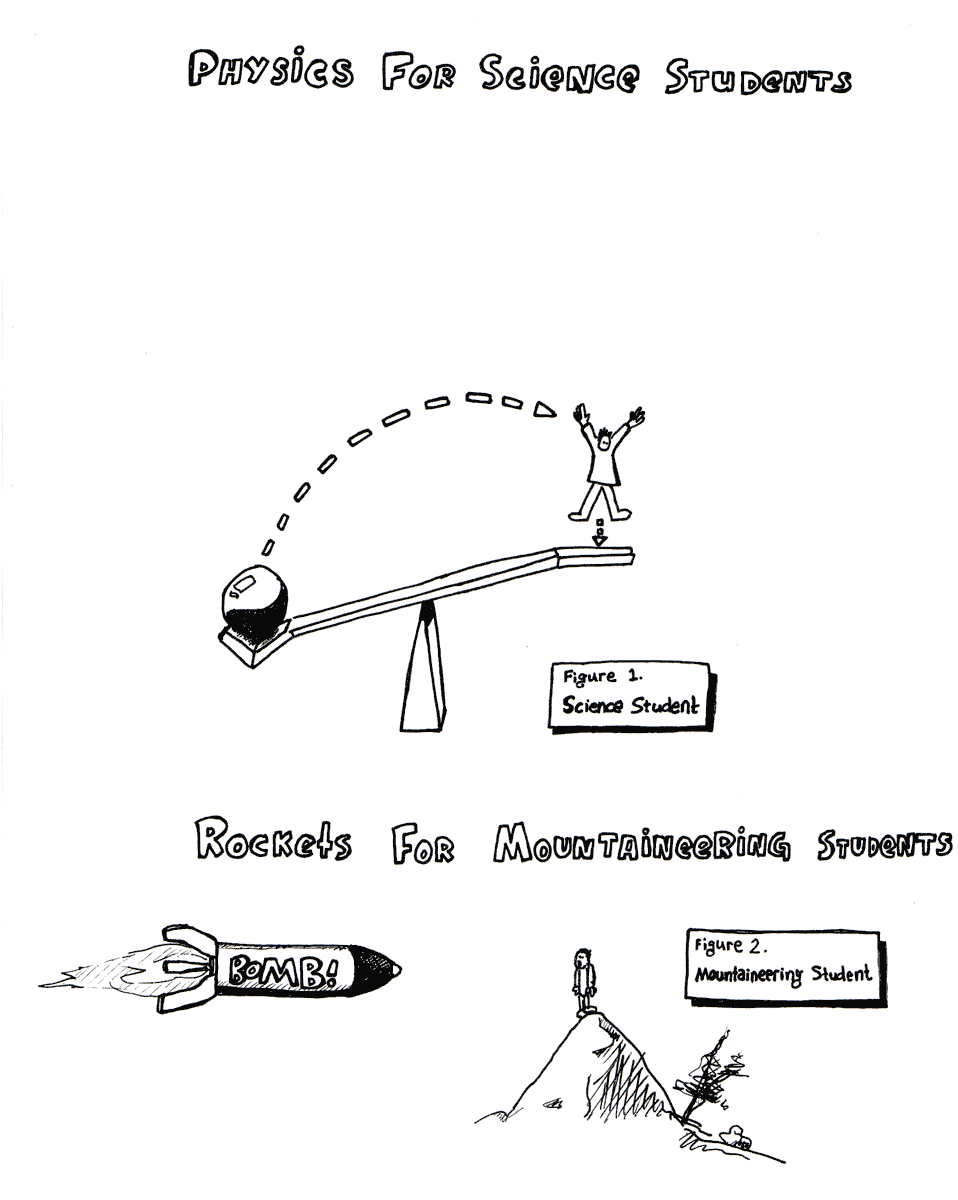 Physics For Science Students
Figure 1.
Science Student
Rockets For Mountaineering Students
BOMB!
Figure 2.
Mountaineering Student